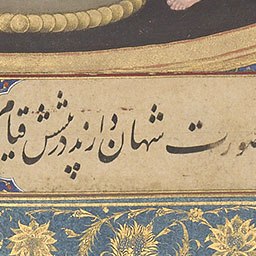 صورت شهان دارند در پیشش قیام